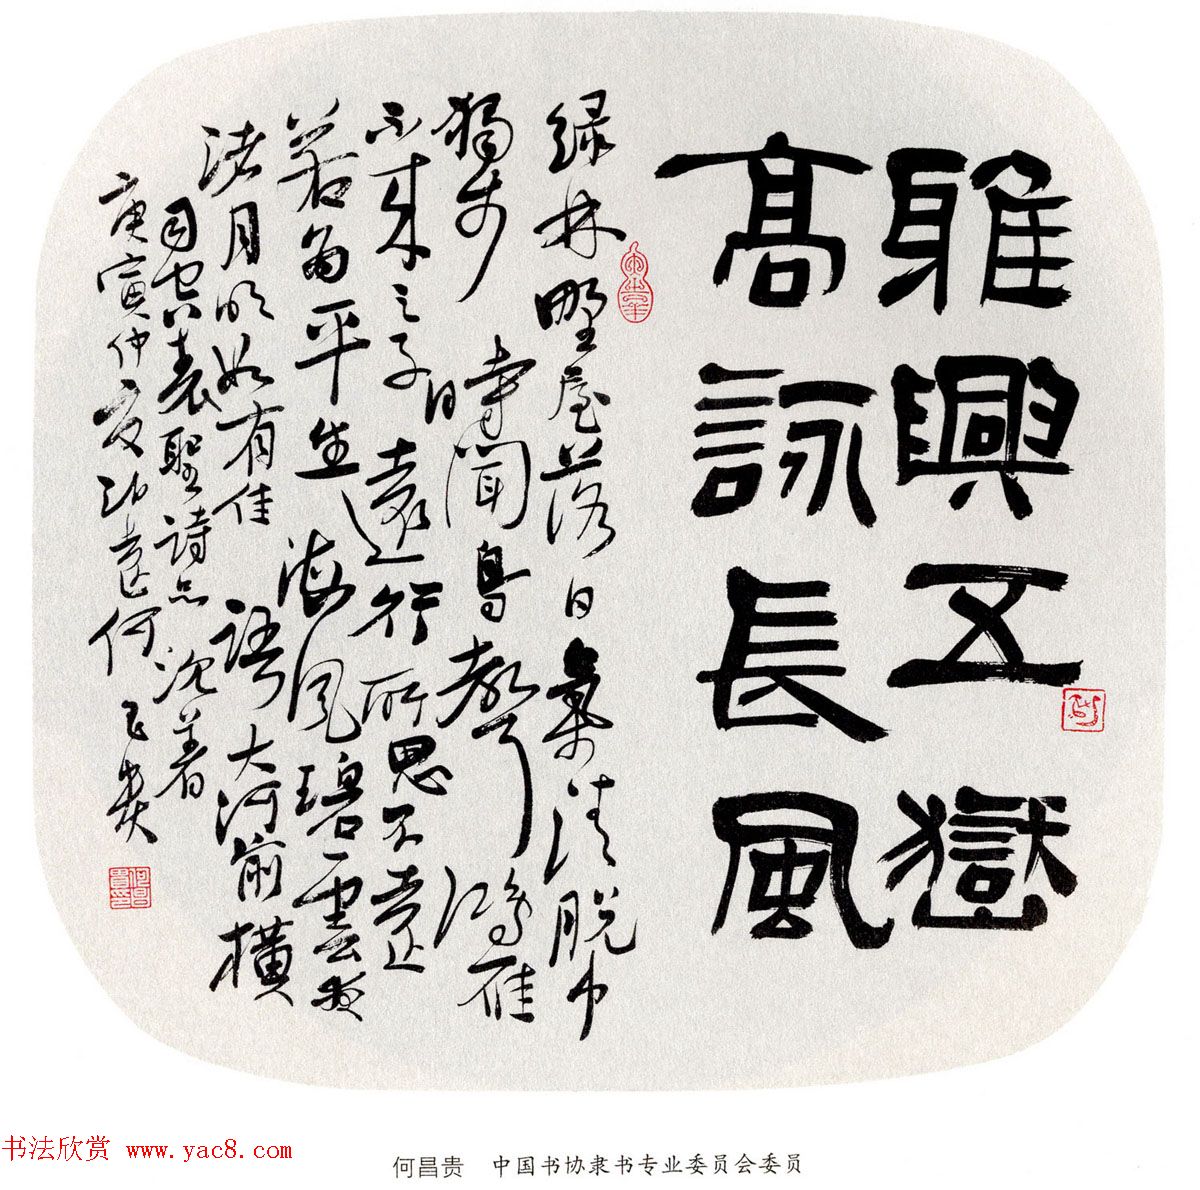 雅興五嶽
高詠長風
緑林野屋落日氣清脱巾
獨步時聞鳥聲鴻雁
不來之子遠行所思不遠
若為平生海風碧雲夜
渚月明如有佳語大河前橫
司空表聖詩品沈着
庚寅仲夏何昌貴
何昌貴印
书法欣赏 www.yac8.com
何昌贵 中国书协隶书专业委员会委员